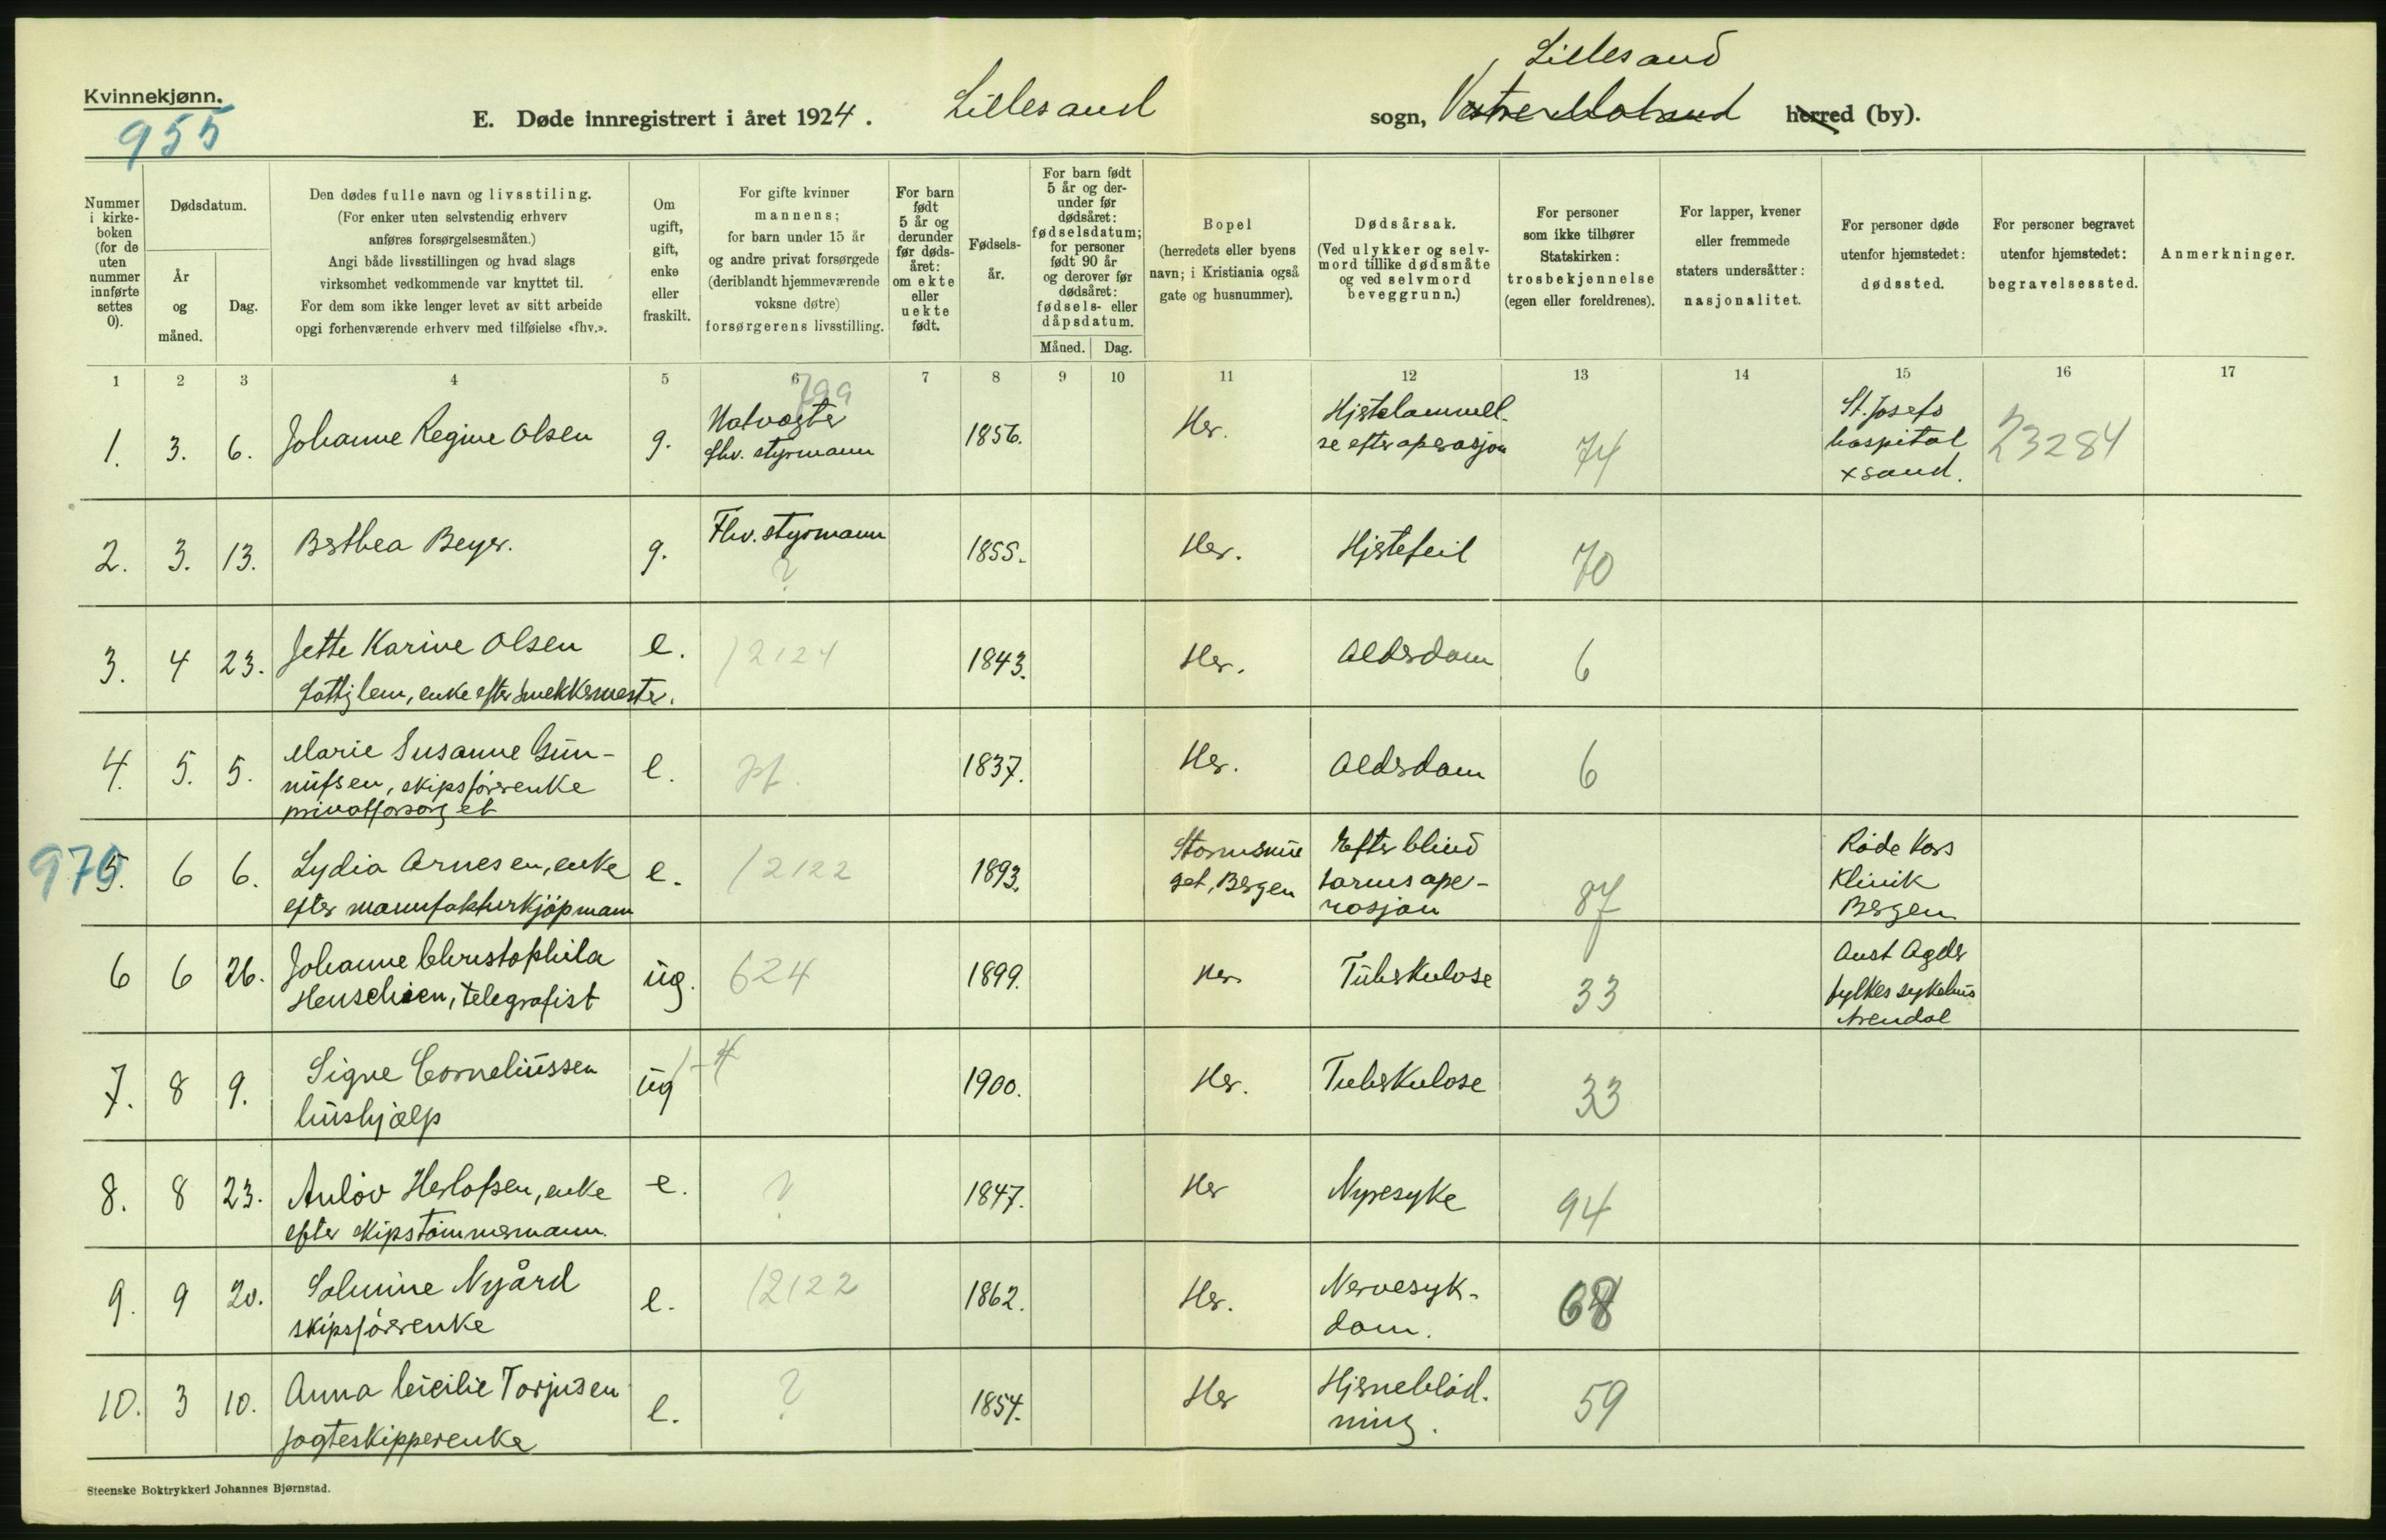 Kvinnekjønn.
955
E. Døde innregistrert i året 1924.
Lillesand
sogn,
Lillesand
herred (by).
Nummer
i kirke-
boken
(for de
uten
nummer
innførte
settes
0).
Dødsdatum.
År
og
måned.
Dag.
Den dødes fulle navn og livsstiling.
(For enker uten selvstendig erhverv
anføres forsørgelsesmåten.)
Angi både livsstillingen og hvad slags
virksomhet vedkommende var knyttet til.
For dem som ikke lenger levet av sitt arbeide
opgi forhenværende erhverv med tilføielse «fhv.».
Om
ugift,
gift,
enke
eller
fraskilt.
For gifte kvinner
mannens;
for barn under 15 år
og andre privat forsørgede
(deriblandt hjemmeværende
voksne døtre)
forsørgerens livsstilling.
For barn
født
5 år og
derunder
før døds-
året:
om ekte
eller
uekte
født.
Fødsels-
år.
For barn født
5 år og der-
under før
dødsåret:
fødselsdatum;
for personer
født 90 år
og derover før
dødsåret:
fødsels- eller
dåpsdatum.
Måned. Dag.
Bopel
(herredets eller byens
navn; i Kristiania også
gate og husnummer).
Dødsårsak.
(Ved ulykker og selv-
mord tillike dødsmåte
og ved selvmord
beveggrunn.)
For personer
som ikke tilhører
Statskirken:
trosbekjennelse
(egen eller foreldrenes).
For lapper, kvener
eller fremmede
staters undersåtter:
nasjonalitet.
For personer døde
utenfor hjemstedet:
dødssted.
For personer begravet
utenfor hjemstedet:
begravelsessted.
Anmerkninger.
1 2 3 4 5 6 7 8 9 10 11 12 13 14 15 16 17
799
1. 3. 6. Johanne Regine Olsen g.
Natvagter
fhv. styrmann
1856. Her.
Hjertelammel-
se efter operasjon
74
St. Josefs
hospital
xsand.
23284
2. 3. 13. Berthea Beyer. g.
Fhv. styrmann
?
1855. Her. Hjertefeil 70
3. 4 23. Jette Karine Olsen
fattiglem, enke efter snekkermester.
e. 12124 1843. Her. Alderdom 6
4. 5. 5. Marie Susanne Gun-
nufsen, skipsførerenke
privatforsørget
e. pf. 1837. Her. Alderdom 6
970
5. 6 6. Lydia Arnesen, enke
efter manufakturkjøpmann
e. 12122 1893.
Bergen
Efter blind
tarmsope-
rasjon
87
Røde Kors
Klinik
Bergen
6 6 26. Johanne Christophila
Henschien, telegrafist
ug. 624 1899. Her Tuberkulose 33
Aust Agder
fylkes sykehus
Arendal
7. 8 9. Signe Corneliussen
hushjælp
ug 1900. Her. Tuberkulose 33
8. 8 23. Anlov Herlofsen, enke
efter skipstømmermann.
e. ? 1847. Her Nyresyke 94
9. 9 20. Salmine Nygård
skipsførerenke
e. 12122 1862. Her.
Nervesyk-
dom.
68
10. 3 10. Anna Cicilie Torjusen
jagteskipperenke
e. ? 1854. Her
Hjerneblød-
ning.
59
Steenske Boktrykkeri Johannes Bjørnstad.